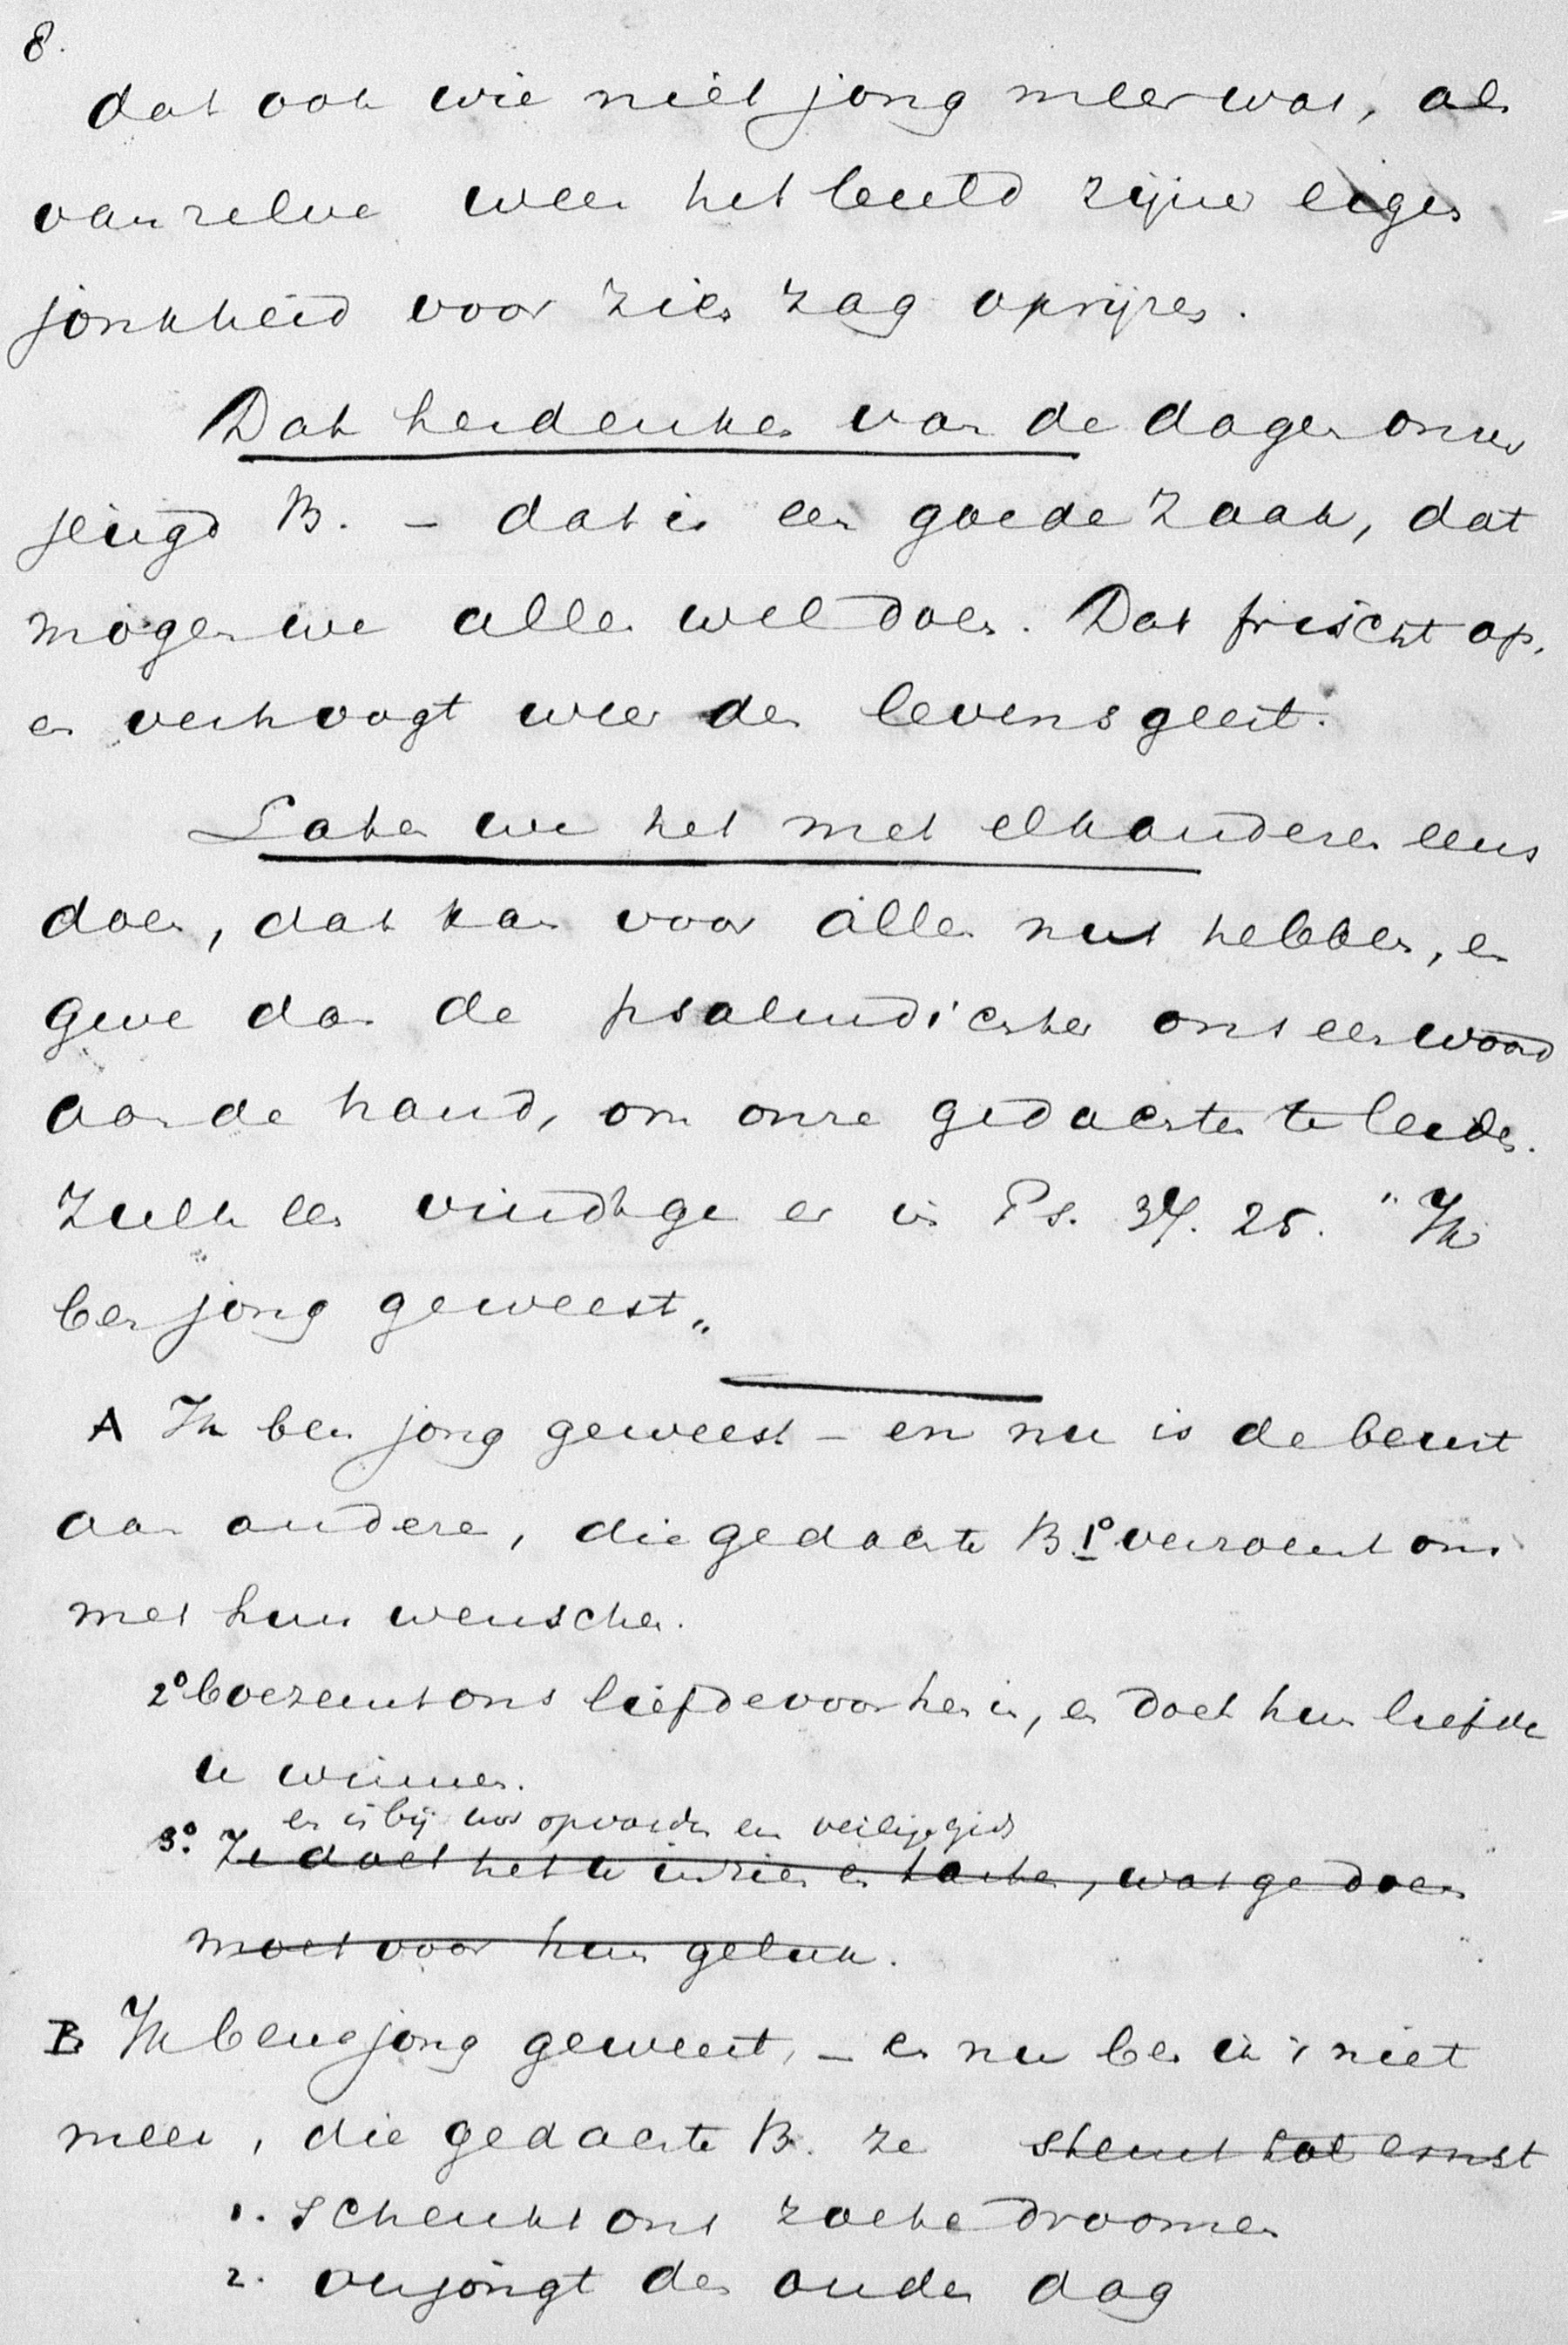 8.
dat ook wie niet jong meer was, als
van zelve weer het beeld zijner eigen
jonkheid voor zich zag oprijzen.
Dat herdenken van de dagen onzer
jeugd B. – dat is een goede zaak, dat
mogen we allen wel doen. Dat frischt op,
en verhoogt weer den levensgeest.
Laten we het met elkanderen eens
doen, dat kan voor allen nut hebben, en
geve dan de psalmdichter ons een woord
aan de hand, om onze gedachten te leiden.
Zulk een vindt ge er in Ps. 37. 25. "Ik
ben jong geweest„
A Ik ben jong geweest – en nu is de beurt
aan andere, die gedachte B. 1° verzoent ons
met hun wenschen.
2° boezemt ons liefde voor hen in, en doet hun liefde
u winnen.
en is bij hun opvoeden een veilige gids
3°. Ze doet het u inzien en trachten, wat ge doen
moet voor hun geluk.
B Ik ben jong geweest, – en nu ben ik 't niet
meer, die gedachte B. ze stemt tot ernst
1. schenkt ons zoete droomen
2. verjongt den ouden dag